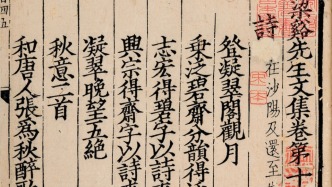 梁谿先生文集卷第十
詩 在沙陽及還至
登凝翠閣觀月
泛碧齋分韻得
志宏得碧字以詩
興宗得齋字以詩
凝翠晚望五絶
秋意二首
和唐人張為秋醉歌